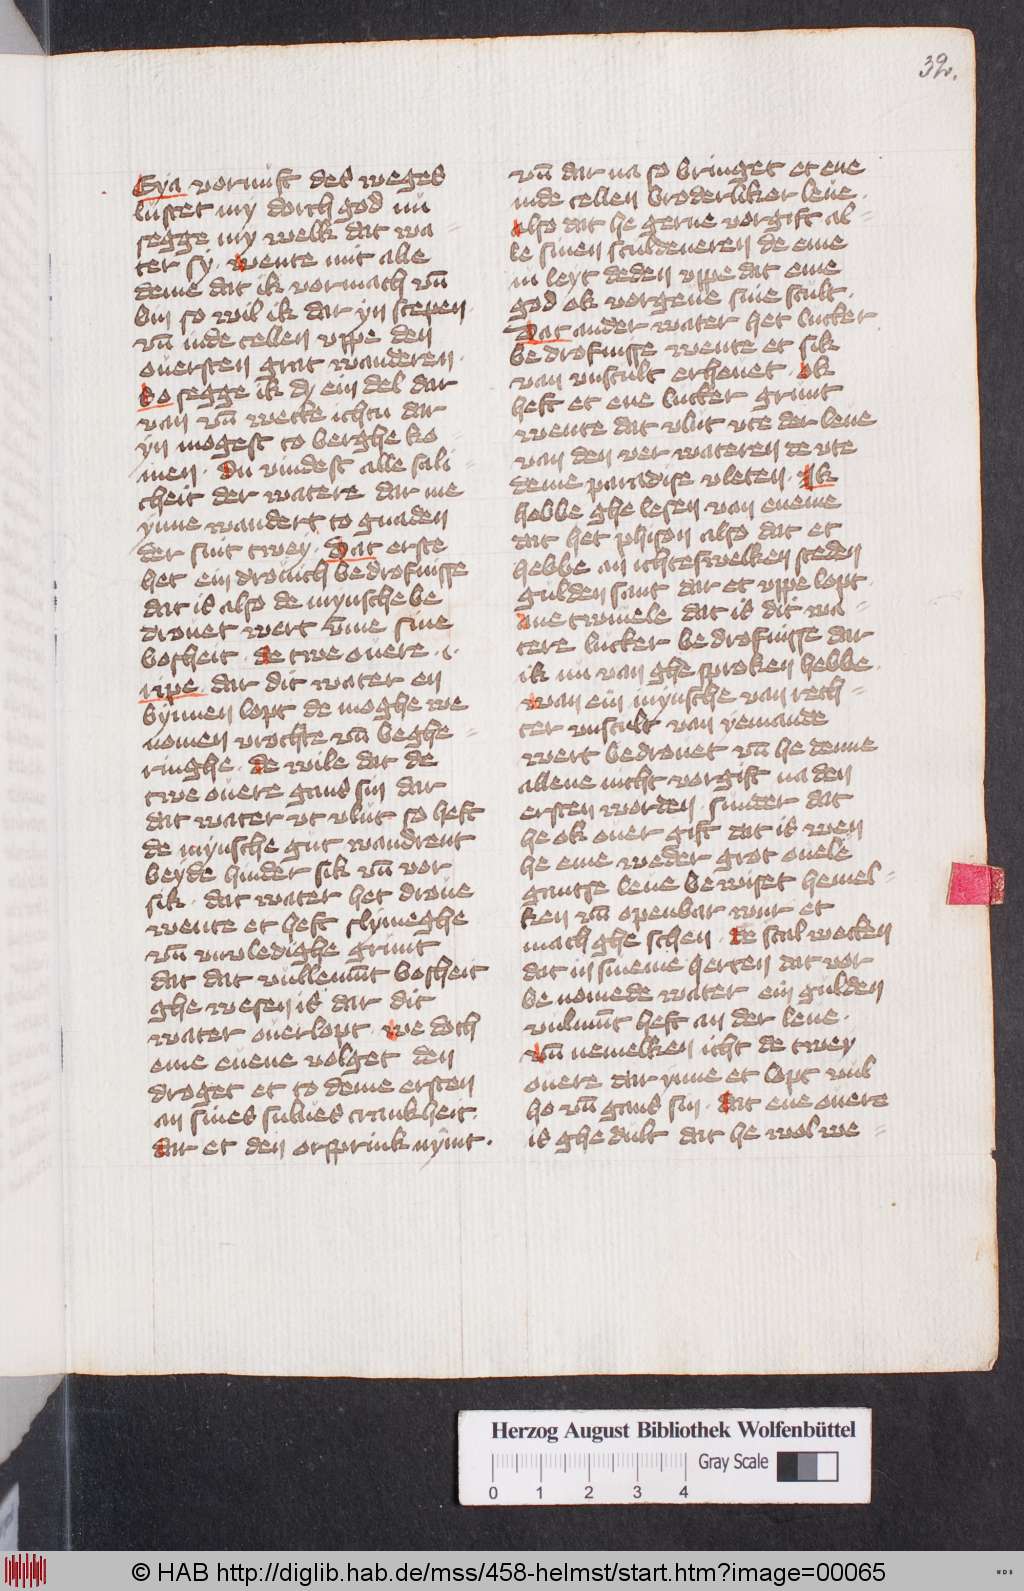 32.
Eya vornuft des weges
lustet my dorch god nu
segge my welk dat wa =
ter sy. wente mit alle
deme dat ik vormach vn̄
bin so wil ik dar yn stepen
vn̄ in de cellen vppe den
ouersten grat wanderen.
So segge ik dy ein del dar
van vn̄ wecke ichtu dar
yn mogest to berghe ko =
men. Du vindest alle sali
cheit der watere dar me
ynne wandert to gnaden
der sint twey. Dat erste
het ein drouich bedrofnisse
dat is also de mynsche be
drouet wert vm̄e sine
bosheit. de twe ouere .i.
ripe. dar dit water en
bynnen lopt de moghe we
nomen vrochte vn̄ beghe =
ringhe. de wile dat de
twe ouere gans sin dar
dat water vt vlut so heft
de mynsche gut wandrent
beyde hinder sik vn̄ vor
sik. dat water het droue
wente et heft slymeghe
vn̄ vnvledighe grunt
dat dat vullemūt bosheit
ghe wesen is dar dit
water ouerlopt. we doch
eme euene volget den
droget et to deme ersten
an sines sulues crankheit.
dar et den orsprink nymt.
vn̄ dar na so bringet et ene
in de cellen broderliker leue.
also dat he gerne vorgift al =
le sinen sculdeneren de eme
in leyt deden vppe dat eme
god ok vorgeue sine scult.
Dat ander water het lucker
bedrofnisse wente et sik
van vnscult erheuet. ok
heft et ene lucker grunt
wente dat vlut vte der leue
van den ver wateren de vte
deme paradise vleten. Ik
hebbe ghe lesen van eneme
dat het phison also dat et
hebbe an ichteswelken steden
gulden sant dar et vppe lopt.
ane twiuele dat is dit wa =
tere lucker bedrofnisse dar
ik nu van ghe sproken hebbe.
wan ein mynsche van rech =
ter vnscult van yemande
wert bedrouet vn̄ he denne
allene nicht vorgift na den
ersten worden. sunder dat
he ok ouer gift dat is wen
he eme weder grot ouele
gantse leue bewiset hemel =
ken vn̄ openbar wur et
mach ghe schen. De scal wecken
dat in sineme herten dat vor
be nomede water ein gulden
vulmūt heft an der leue.
vn̄ nemelken icht de twey
ouere dar ynne et lopt vul
ho vn̄ gans sin. dat ene ouere
is ghe dult dat he wol we =
Herzog August Bibliothek Wolfenbüttel
0 1 2 3 4
Gray Scale
© HAB http://diglib.hab.de/mss/458-helmst/start.htm?image=00065